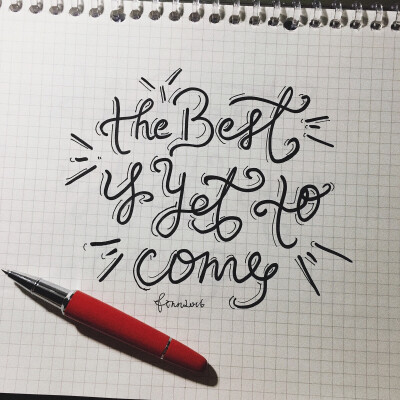 the Best
is Yet to
come